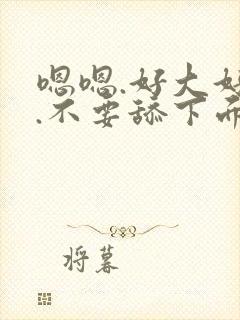 嗯嗯.好大好
.不要舔下面
将暮